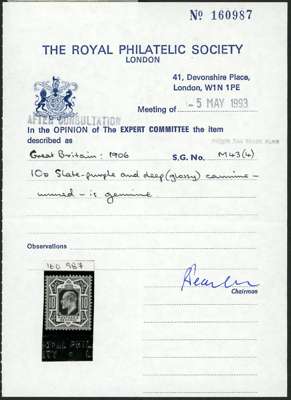 No 160987
THE ROYAL PHILATELIC SOCIETY
LONDON
41, Devonshire Place,
London, W1N 1PE
Meeting of - 5 MAY 1993
AFTER CONSULTATION
In the OPINION of The EXPERT COMMITTEE the item
described as
Great Britain: 1906 S.G. No. M43(4)
10d Slate-purple and deep (glossy) carmine -
unused - is genuine
Observations
160 987
Chairman